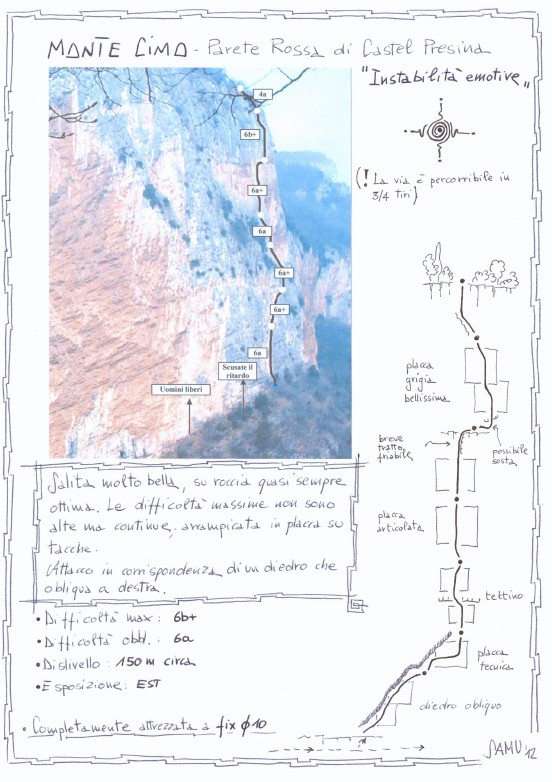 MONTE CIMO - Parete Rossa di Castel Presina
"Instabilità emotive"
(! La via è percorribile in
3/4 tiri)
4a
6b+
6a+
6a
6a+
6a+
6a
Scusate il
ritardo
Uomini liberi
placca
grigia
bellissima
breve
tratto
friabile
possibile
sosta
placca
articolata
tettino
placca
tecnica
diedro obliquo
Salita molto bella, su roccia quasi sempre
ottima. Le difficoltà massime non sono
alte ma continue; arrampicata in placca su
tacche.
Attacco in corrispondenza di un diedro che
obliqua a destra.
• Difficoltà max: 6b+
• Difficoltà obbl.: 6a
• Dislivello: 150 m circa
• Esposizione: EST
• Completamente attrezzata a fix φ10
SAMU '12